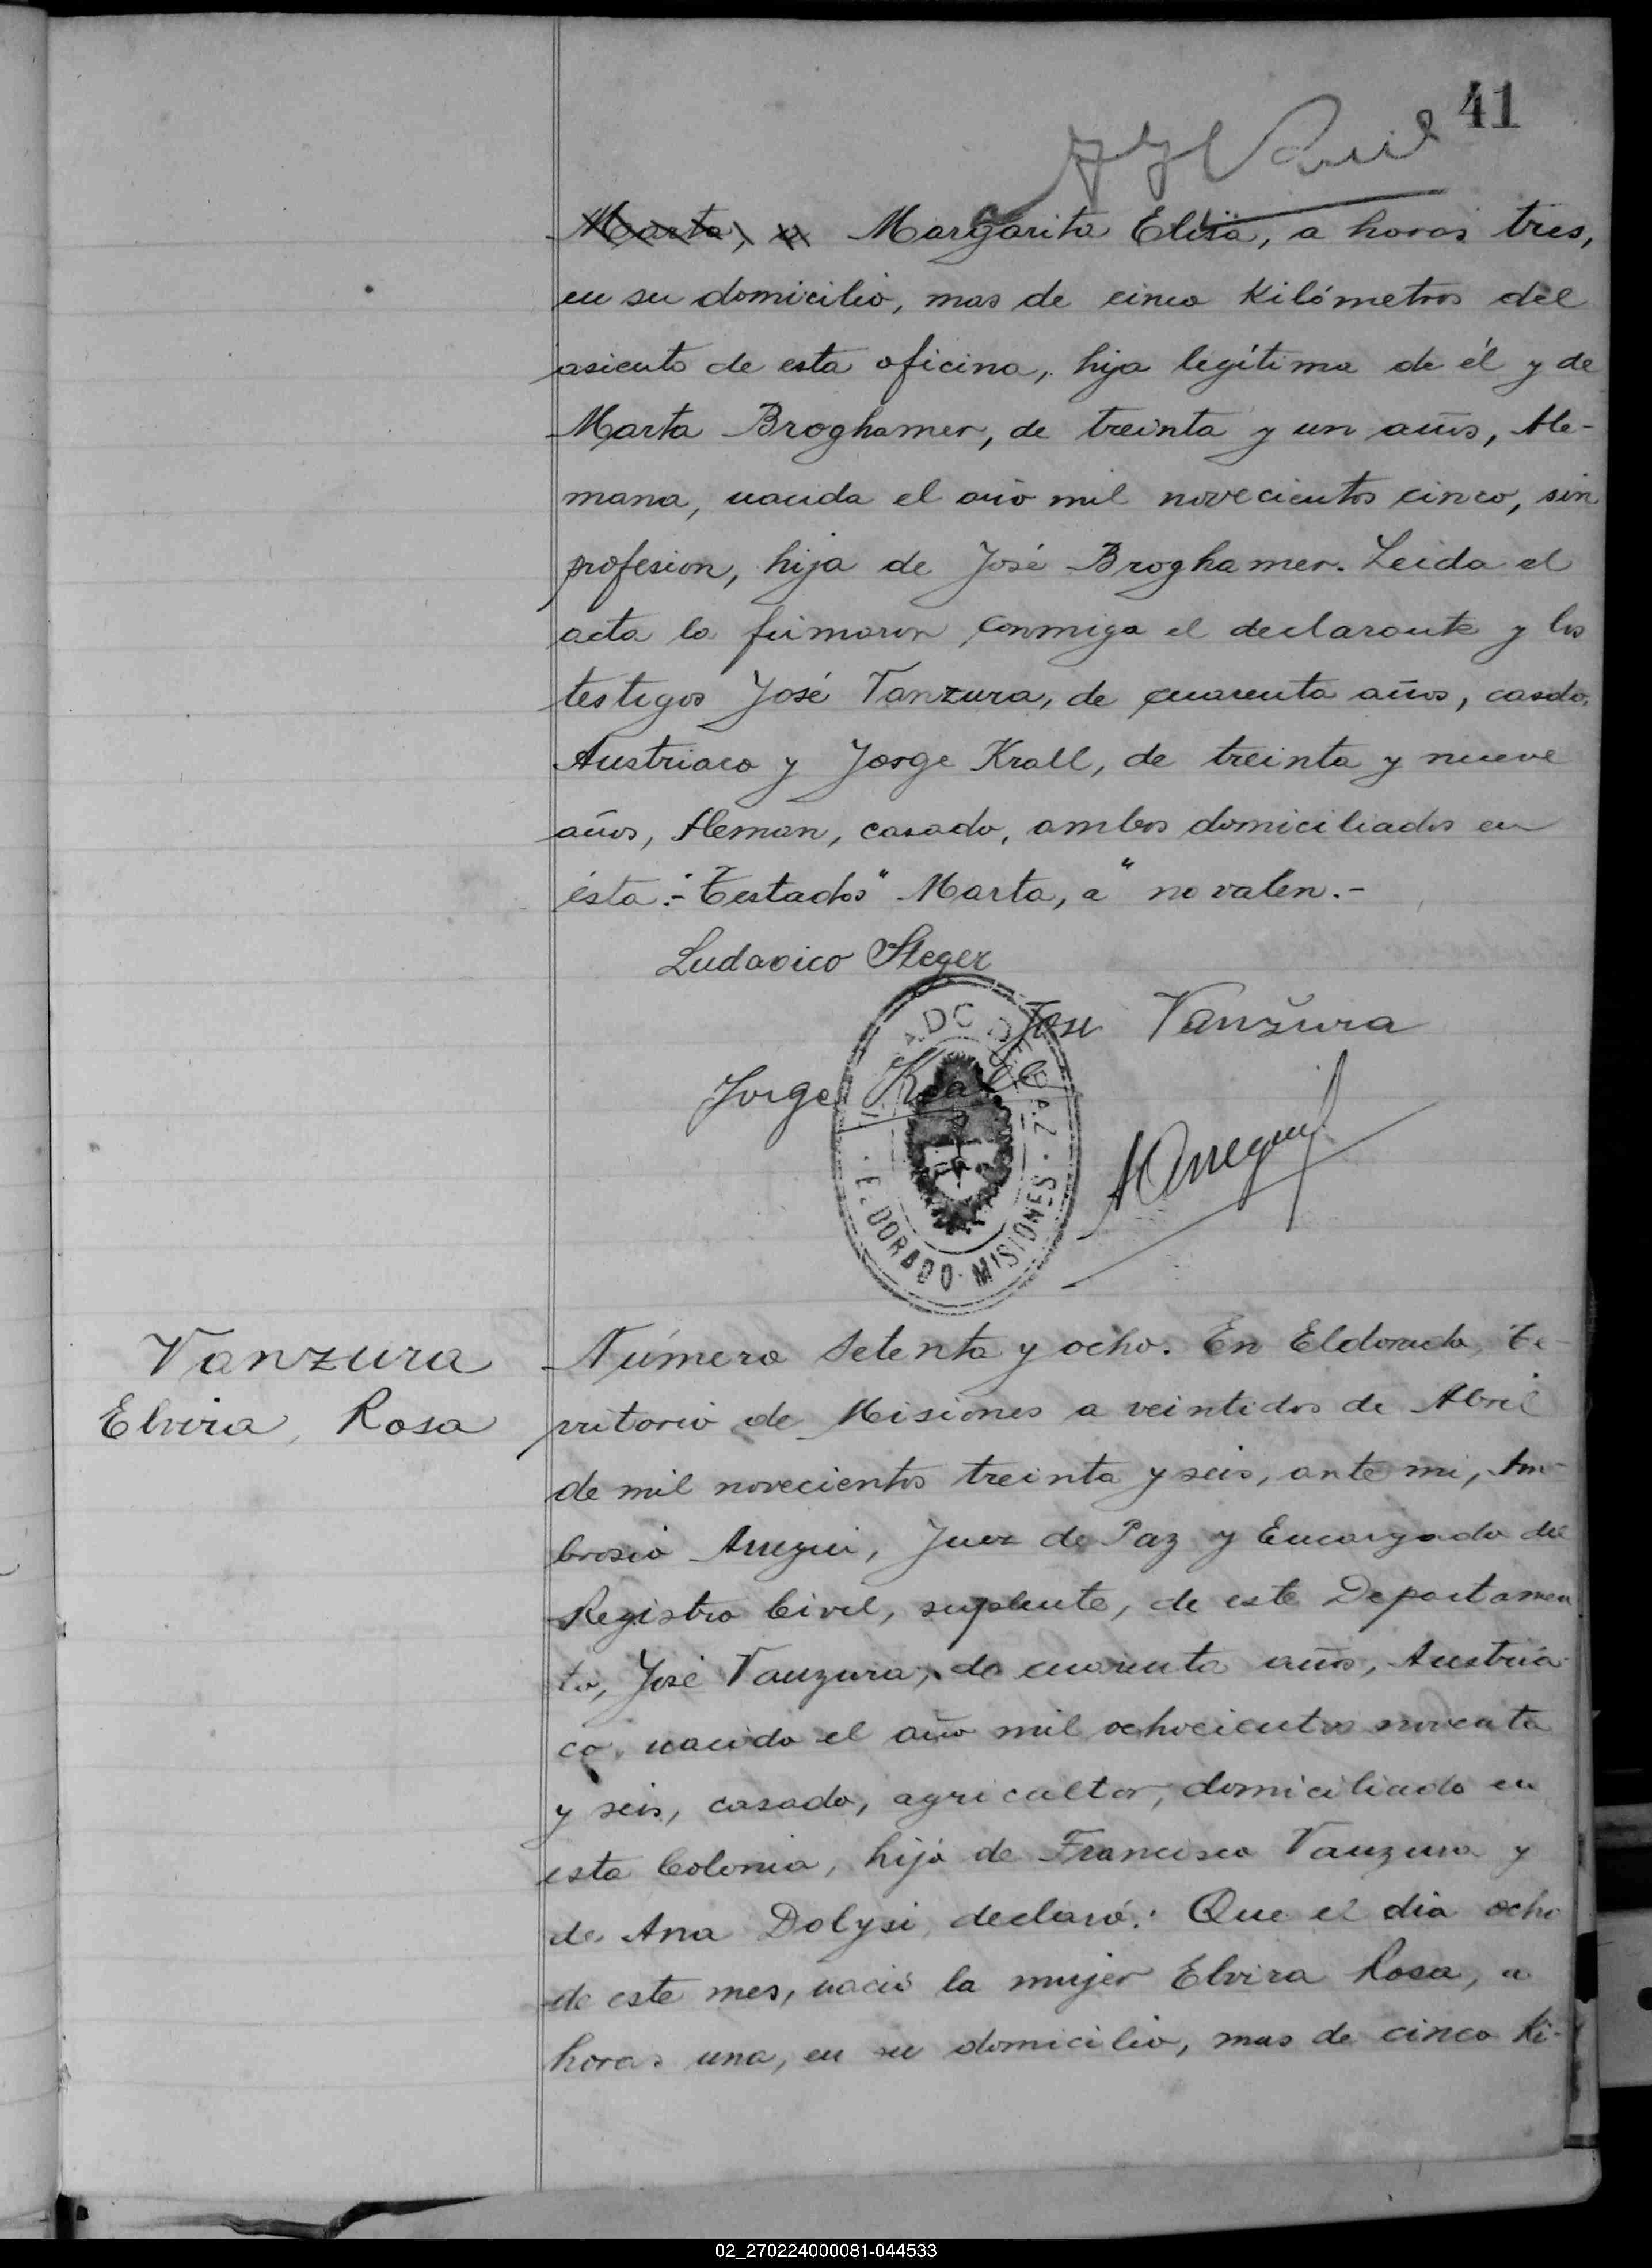 41
Marta, a Margarita Elisa, a horas tres,
en su domicilio, mas de cinco Kilómetros del
asiento de esta oficina, hija legítima de él y de
Marta Broghamer, de treinta y un años, Ale-
mana, nacida el año mil novecientos cinco, sin
profesion, hija de José Broghamer. Leida el
acta la firmaron conmigo el declarante y los
testigos José Vanzura, de cuarenta años, casdo,
Austriaco y Jorge Krall, de treinta y nueve
años, Aleman, casado, ambos domiciliados en
ésta.- Testados "Marta, a" no valen.-
Ludovico Steger
José Vanžura
Jorge Krall
ELDORADO · MISIONES
Vanzura
Elvira, Rosa
Número Setenta y ocho. En Eldorado, Te-
rritorio de Misiones a veintidos de Abril
de mil novecientos treinta y seis, ante mi, Am-
brosio Arregui, Juez de Paz y Encargado del
Registro Civil, suplente, de este Departamen
to, José Vanzura, de cuarenta años, Austría-
co, nacido el año mil ochocientos noventa
y seis, casado, agricultor, domiciliado en
esta Colonia, hijo de Francisco Vanzura y
de Ana Dolysi, declaró: Que el dia ocho
de este mes, nació la mujer Elvira Rosa, a
horas una, en su domicilio, mas de cinco Ki-
02_270224000081-044533